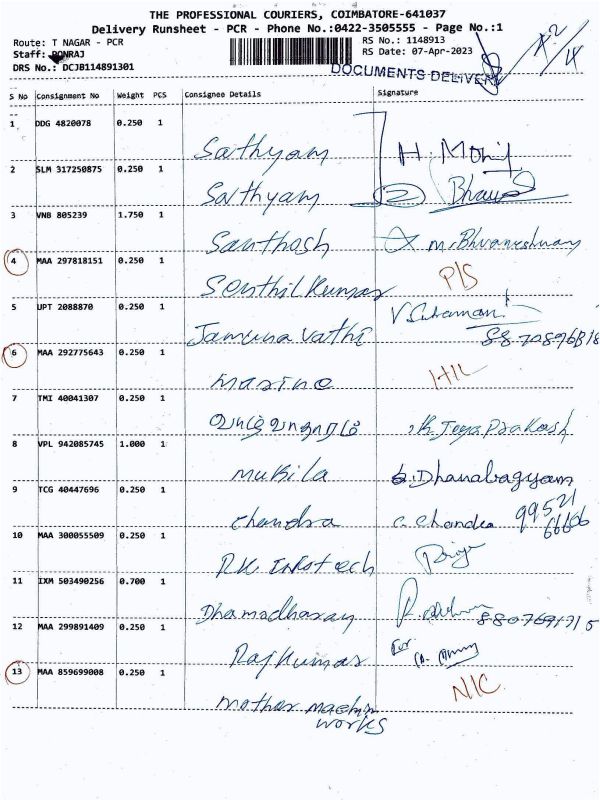 THE PROFESSIONAL COURIERS, COIMBATORE-641037
Delivery Runsheet - PCR - Phone No.:0422-3505555 - Page No.:1
Route: T NAGAR - PCR
RS No.: 1148913
Staff: PONRAJ
RS Date: 07-Apr-2023
DRS No.: DCJB114891301
DOCUMENTS DELIVERY
S No Consignment No Weight PCS Consignee Details Signature
1 DDG 4820078 0.250 1
Sathyam H. Mohij
2 SLM 317250875 0.250 1
Sathyam 2
3 VNB 805239 1.750 1
Santhosh M. Bhvaneshwary
4 MAA 297818151 0.250 1
Senthil Kumar P/S
5 UPT 2088870 0.250 1
Jamuna vathi
6 MAA 292775643 0.250 1
marino H/L
7 TMI 40041307 0.250 1
JeyaPrakash
8 VPL 942085745 1.000 1
mukila Dhanabagyam
9 TCG 40447696 0.250 1
chandra C. Chandra 99521 66606
10 MAA 300055509 0.250 1
RK Infotech Priya
11 IXM 503490256 0.700 1
12 MAA 299891409 0.250 1
Rajkumar For
13 MAA 859699008 0.250 1
mother machin works N/C